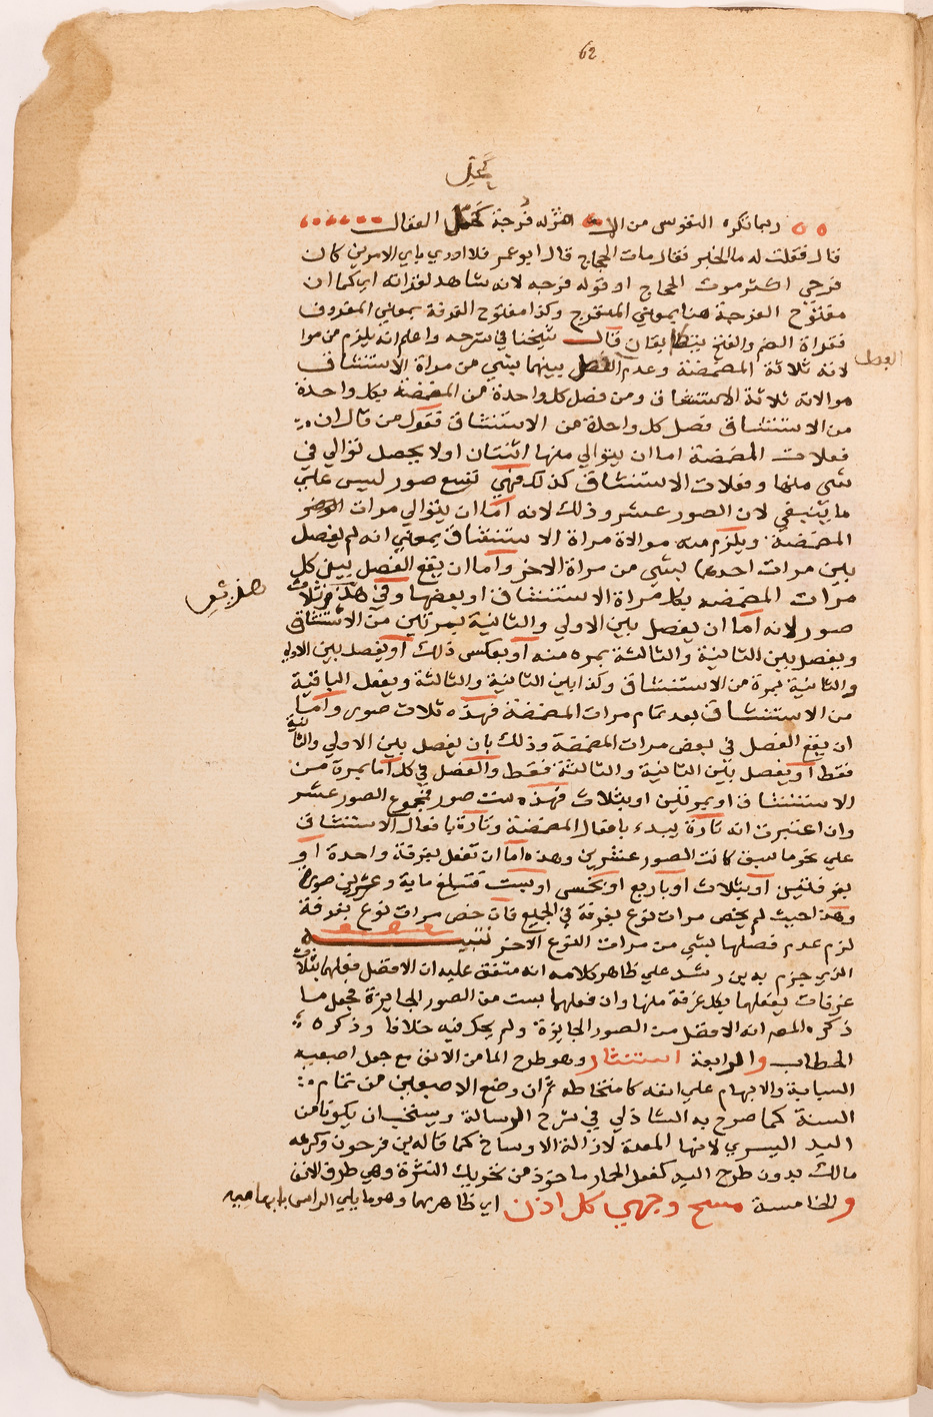 62
كحل
ربما تكره النفوس من الامر له فرجة كحل العقال
قال فقلت له ما الخبر فقال مات الحجاج قال ابو عمر فلا ادري باي الامرين كان
فرحي اكثر موت الحجاج او قوله فرجه لانه شاهد لقراته اي كما ان
مفتوح الفرجة هنا بمعني المنفرج وكذا مفتوح الغرفة بمعني المغروف
فقراة الضم والفتح يتطابقان قال شيخنا في شرحه واعلم انه يلزم من موا
لاة ثلاثة المضمضة وعدم الفصل بينها بشي من مراة الاستنشاق
موالاة ثلاثة الاستنشاق ومن فصل كل واحدة من المضمضة بكل واحدة
من الاستنشاق فصل كل واحدة من الاستنشاق فقول من قال ان
فعلات المضمضة اما ان يتوالي منها اثنتان او لا يحصل توالي في
شي منها وفعلات الاستنشاق كذلك فهي تسع صور ليس علي
ما ينبغي لان الصور عشر وذلك لانه اما ان يتوالي مرات
المضمضة ويلزم منه موالاة مراة الاستنشاق بمعني انه لم يفصل
بين مرات احدهما بشي من مراة الاخر واما ان يقع الفصل بين كل
مرات المضمضه بكل مراة الاستنشاق او بعضها وفي هذا عشر ثلاث
صور لانه اما ان يفصل بين الاولي والثانية بمرتين من الاستنشاق
ويفصل بين الثانية والثالثة بمره منه او بعكس ذلك او يفصل بين الاولي
والثانية بمرة من الاستنشاق وكذا بين الثانية والثالثة ويفعل الباقية
من الاستنشاق بعد تمام مرات المضمضة فهذه ثلاث صور واما
ان يقع الفصل في بعض مرات المضمضة وذلك بان يفصل بين الاولي والثانية
فقط او يفصل بين الثانية والثالثة فقط والفصل في كل اما بمرة من
الاستنشاق او بمرتين او بثلاث فهذه ست صور فمجموع الصور عشر
وان اعتبرت انه تارة يبدء بافعال المضمضة وتارة بافعال الاستنشاق
علي نحو ما سبق كانت الصور عشرين وهذه اما ان تفعل بغرفة واحدة او
بغرفتين او بثلاث او باربع او بخمس او بست فتبلغ ماية وعشرين صورة
وهذا حيث لم يخص مرات نوع بغرفة في الجميع فان خص مرات نوع بغرفة
لزم عدم فصلها بشي من مرات النوع الاخر تنبيه
الذي جزم به بن رشد علي ظاهر كلامه انه متفق عليه ان الافضل فعلهما بثلاث
غرفات يفعلهما بكل غرفة منها وان فعلهما بست من الصور الجايزة فجعل ما
ذكره المص انه الافضل من الصور الجايزة ولم يحك فيه خلافا وذكره
الحطاب والرابعة استنثار وهو طرح الما من الانف مع جعل اصبعيه
السبابة والابهام علي انفه كامتخاطه ثم ان وضع الاصبعين من تمام
السنة كما صرح به الشاذلي في شرح الرسالة وينبغي ان يكونا من
اليد اليسري لانها المعدة لازالة الاوساخ كما قاله بن فرحون وكرهه
مالك بدون طرح اليد كفعل الحمار ماخوذ من تحريك النثرة وهي طرف الانف
والخامسة مسح وجهي كل اذن اي ظاهرهما وهو ما يلي الراس بابهاميه